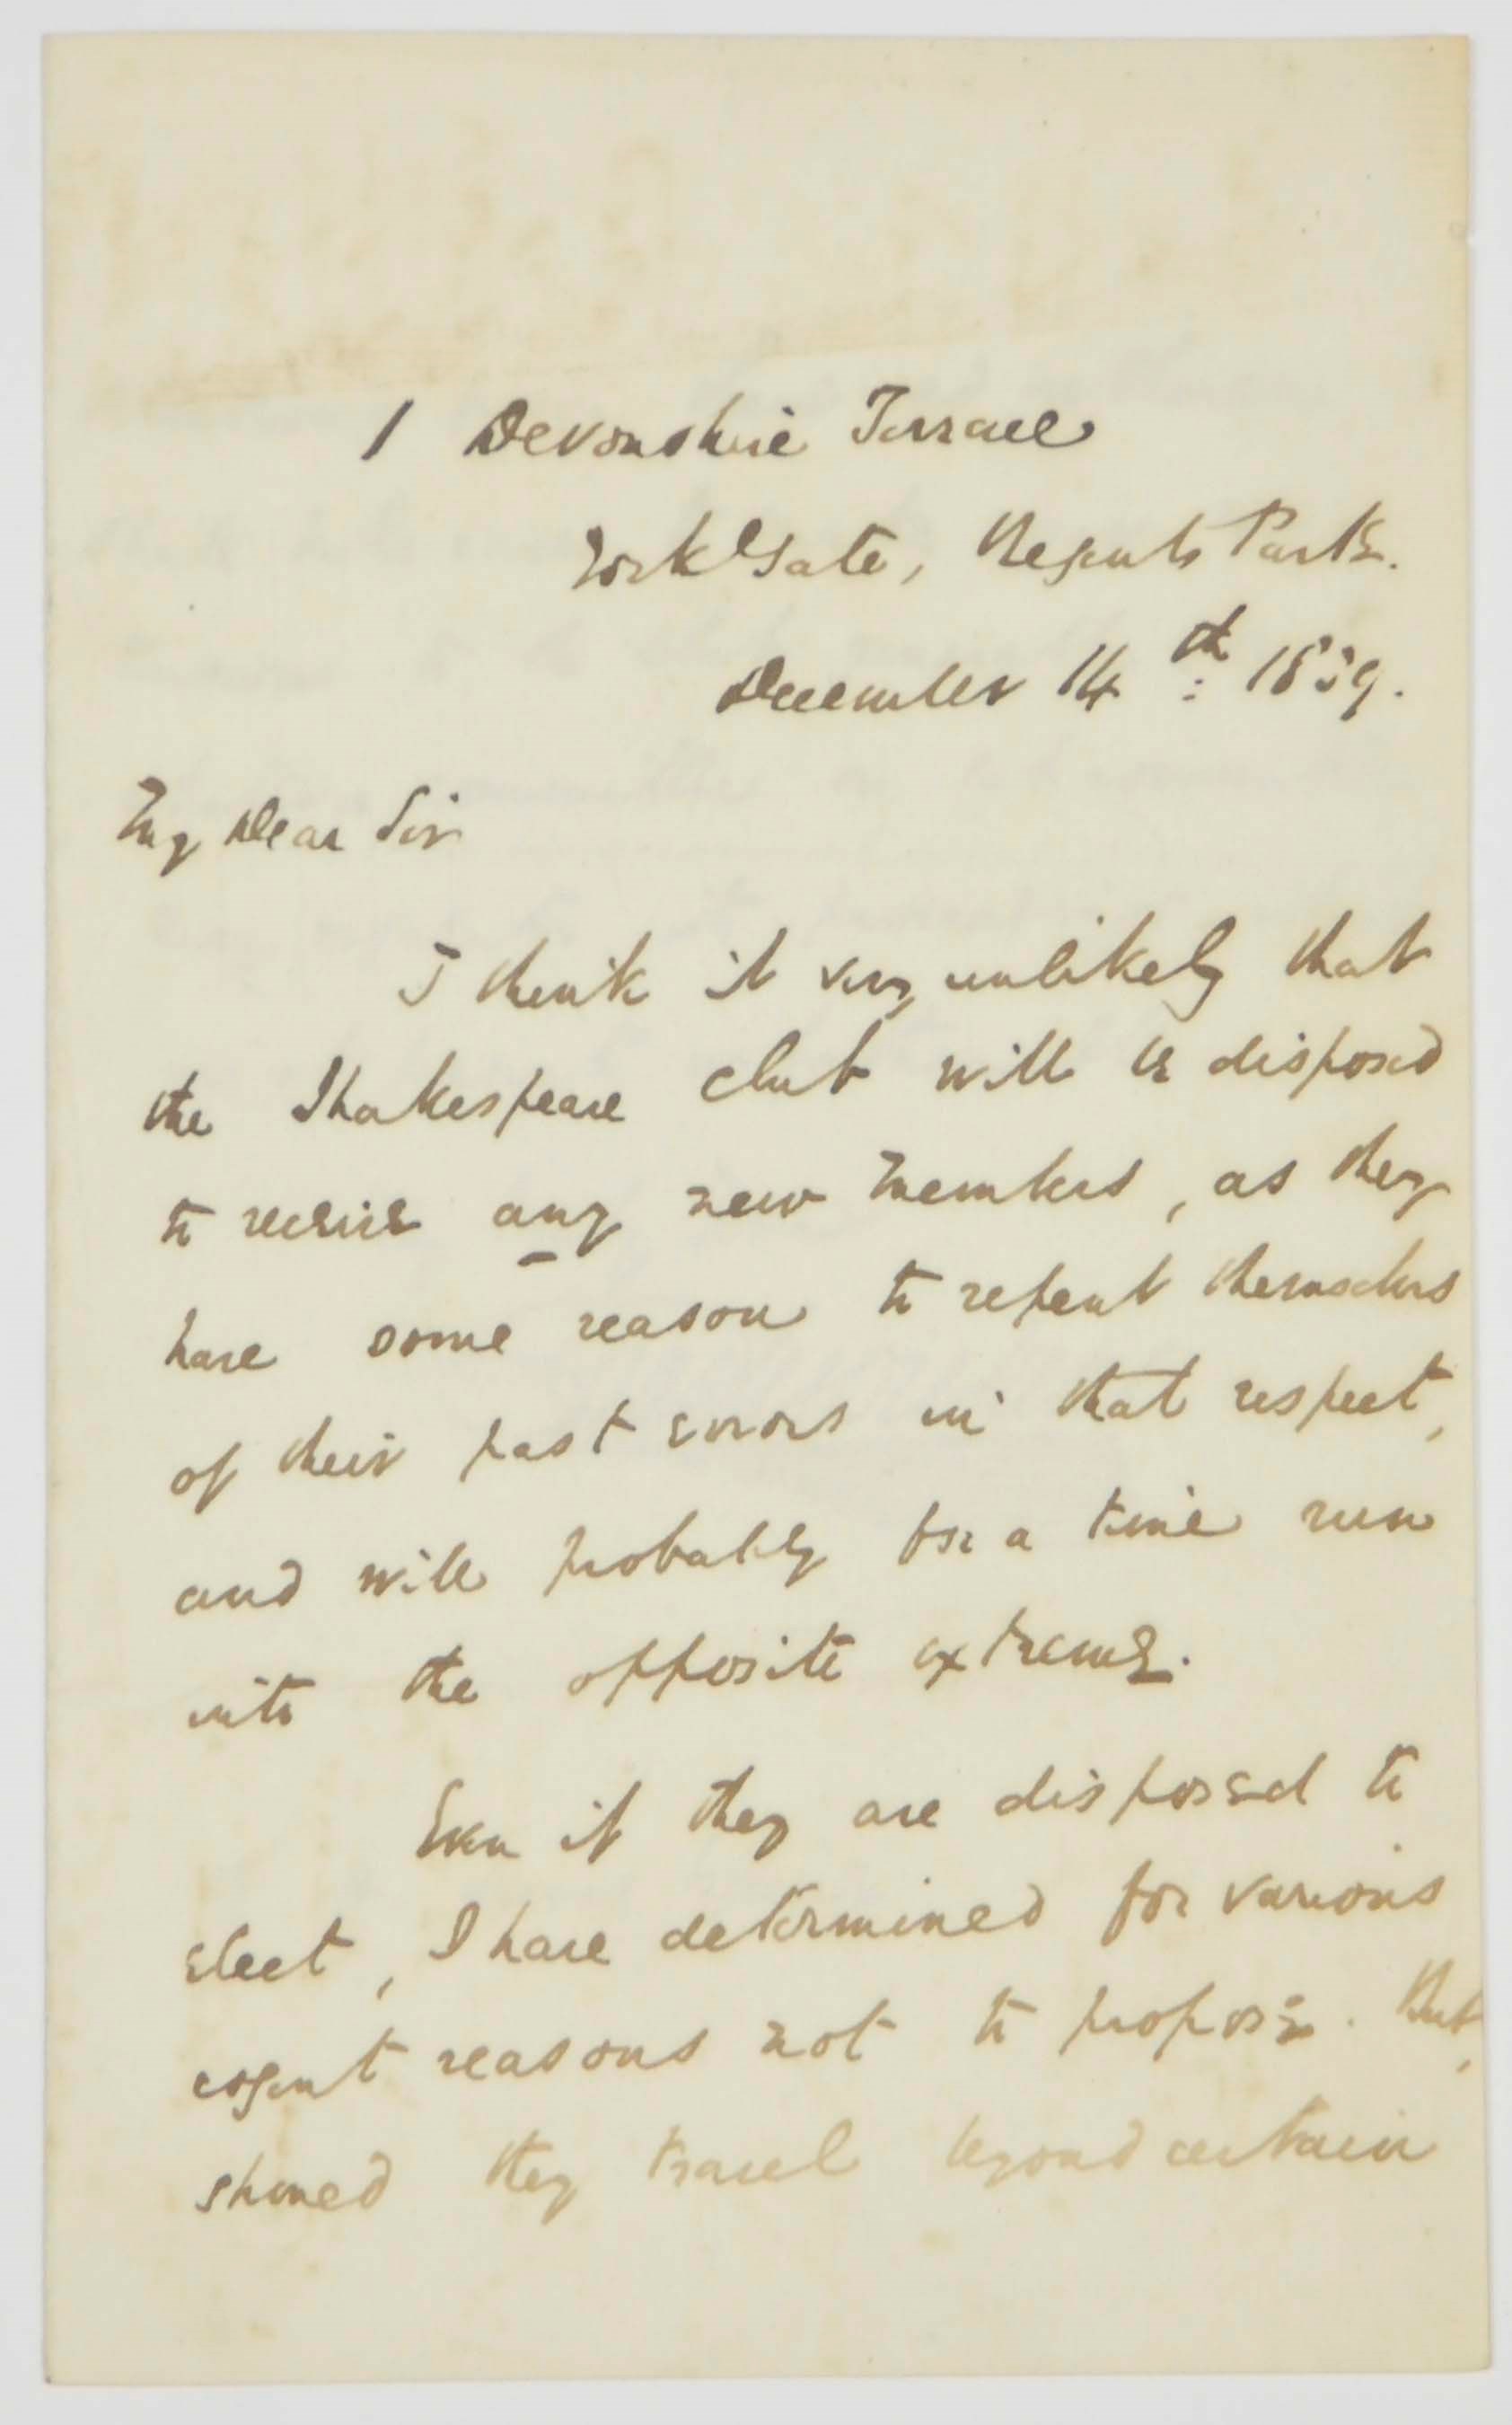 1 Devonshire Terrace
York Gate, Regents Park.
December 14th: 1839.
My Dear Sir
I think it very unlikely that
the Shakespeare club will be disposed
to receive any new members, as they
have some reason to repent themselves
of their past errors in that respect,
and will probably for a time run
into the opposite extreme.
Even if they are disposed to
elect, I have determined for various
cogent reasons not to propose. But,
should they travel beyond certain